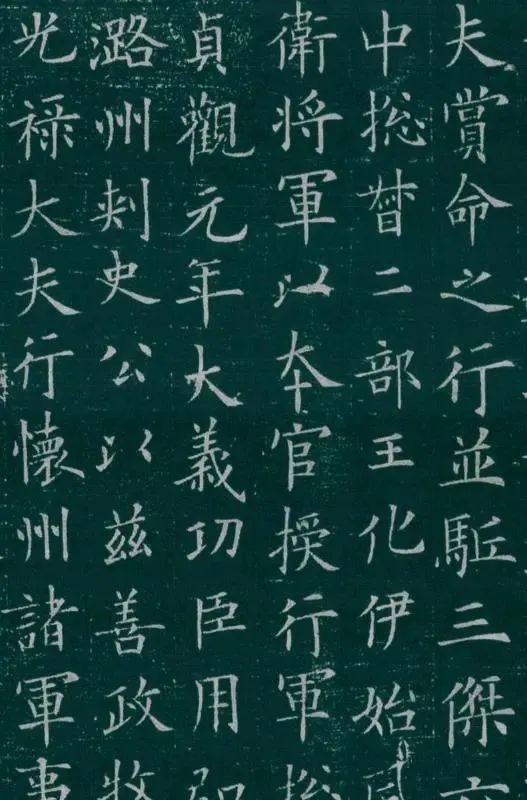 夫賞命之行並駈三傑
中捴督二部王化伊始
衛将軍以本官授行軍
貞觀元年大義功臣用
潞州刺史公以兹善政牧
光禄大夫行懷州諸軍事